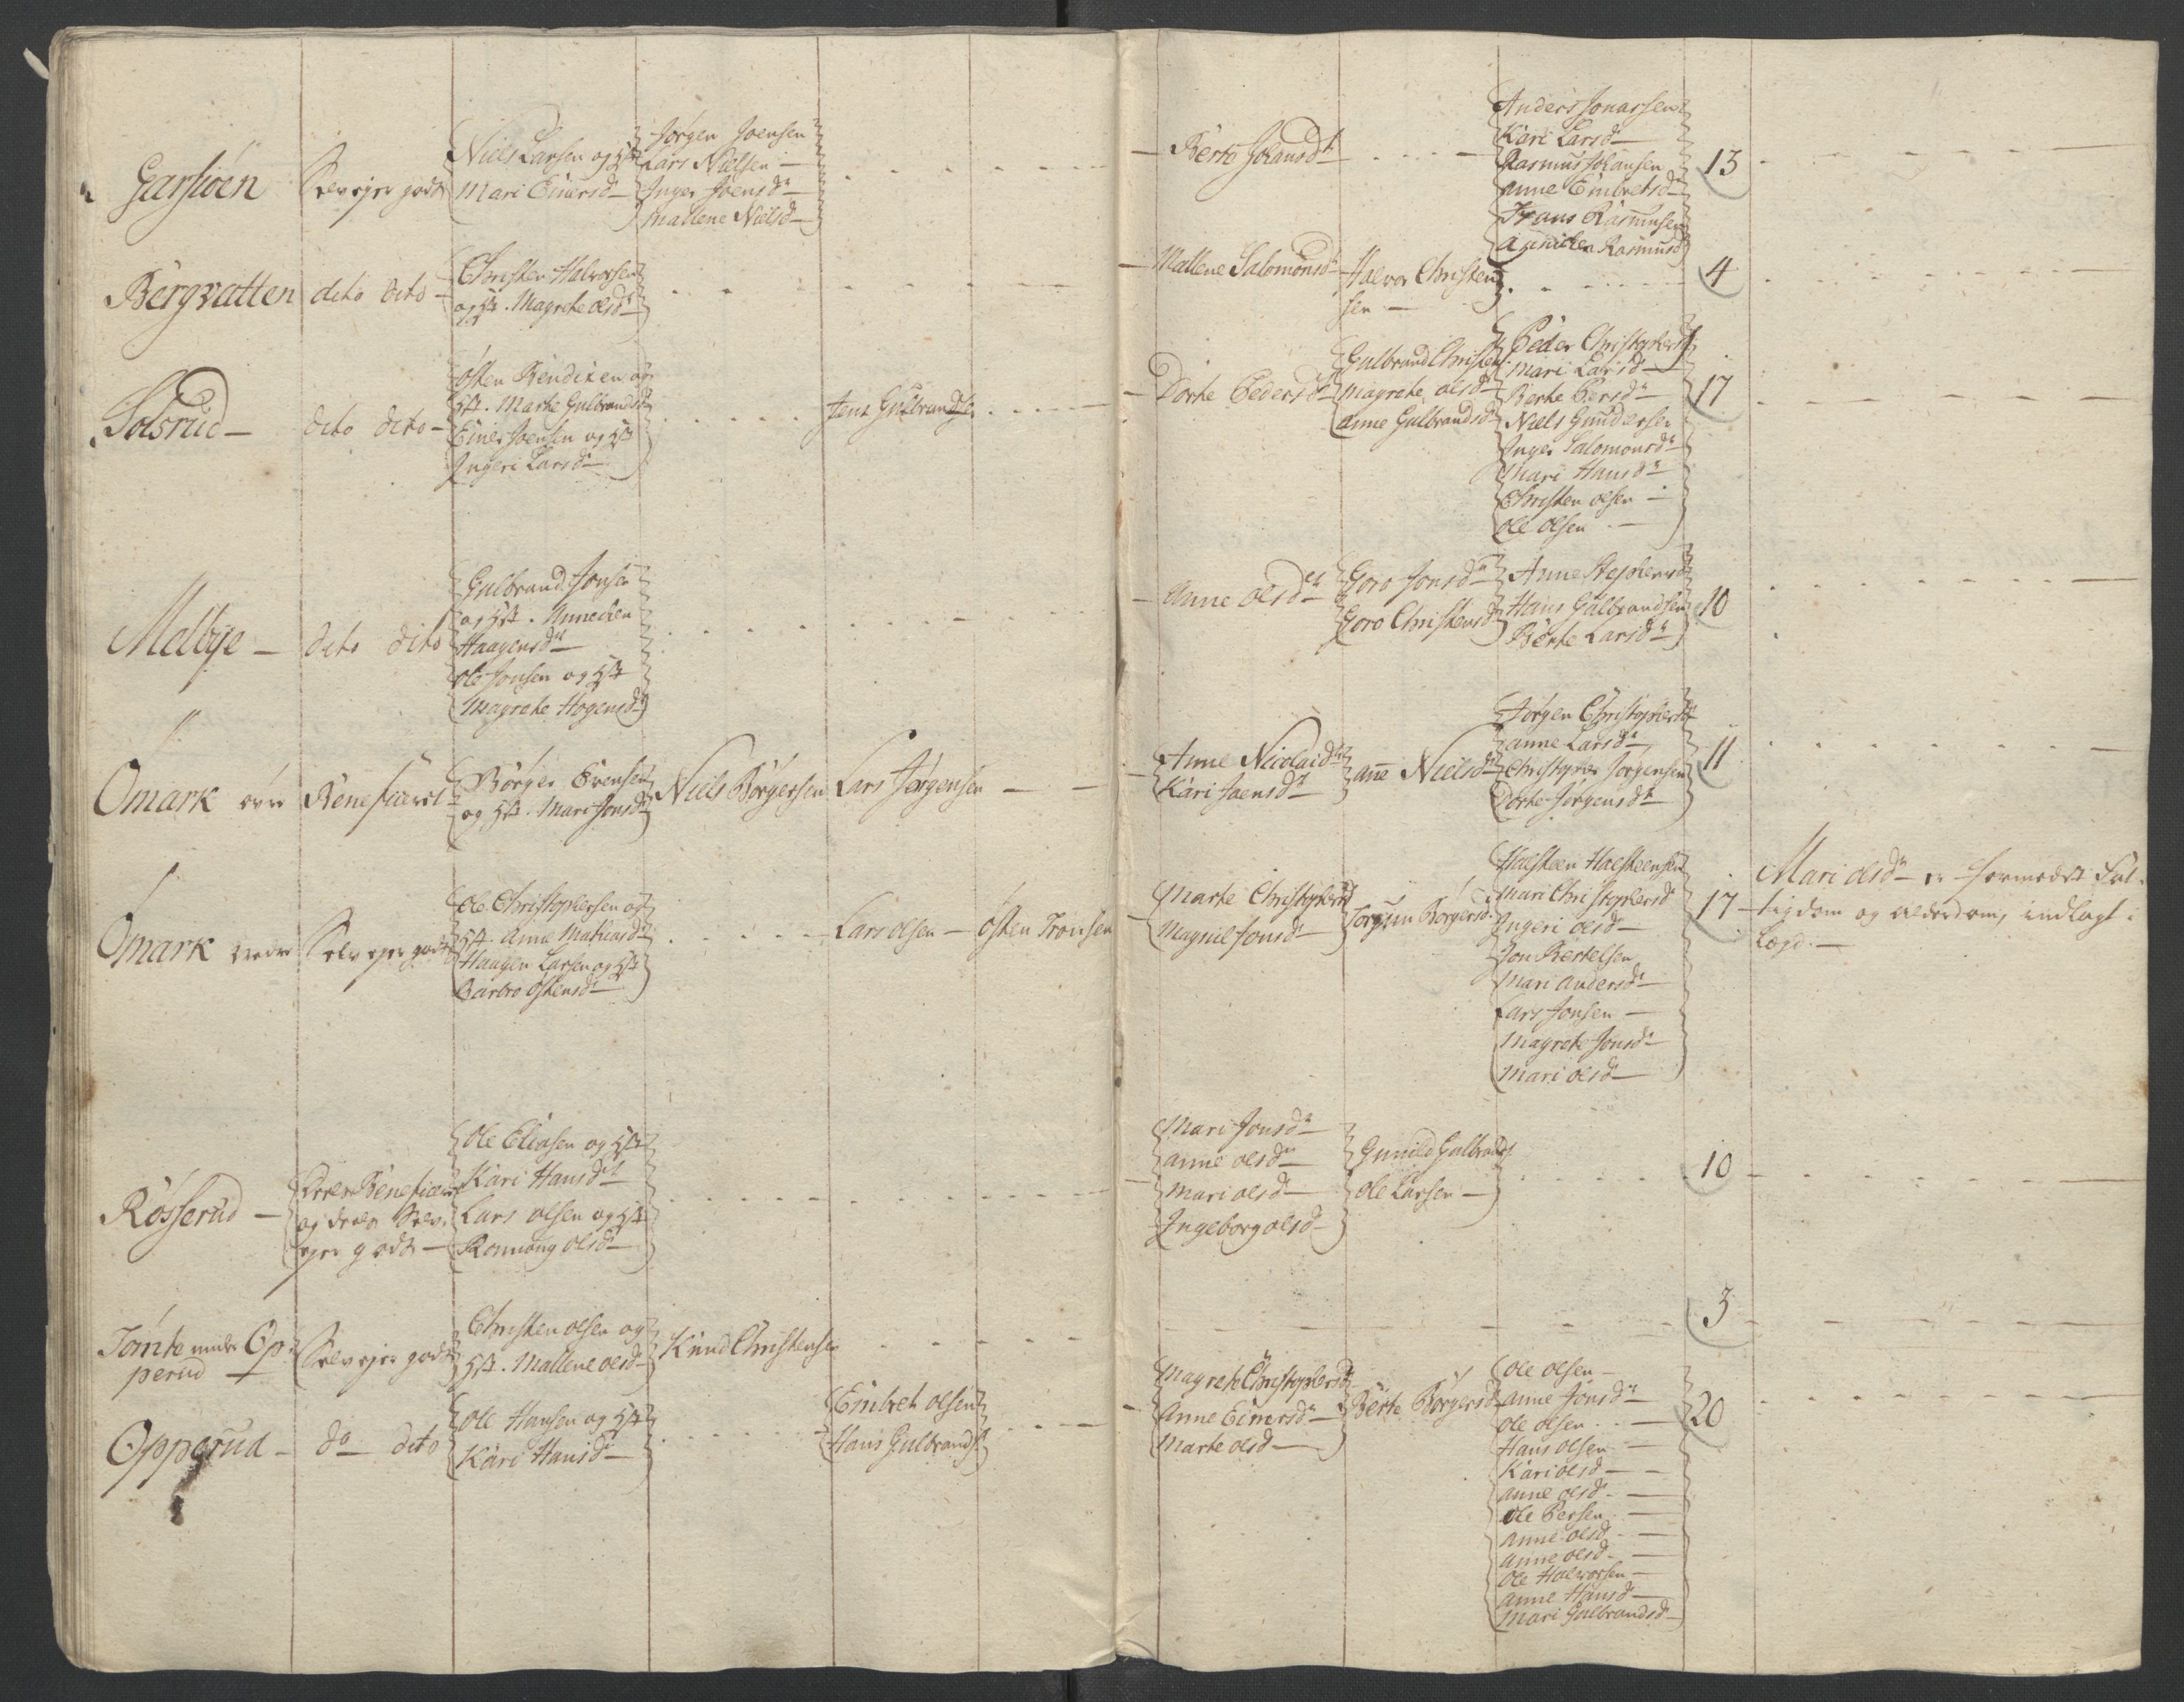 Garsiøen
Selvejer godts
Niels Larsen og Hst
Mari Einersd
Jørgen Joensen
Lars Nielsen
Inger Joensdr
Mallene Nielsd
Berte Johansdr
Anders Jonassen
Kari Larsdr
Rasmus Johansen
Anne Embretsdr
Frans Rasmusen
Rasmusd
13
Bergvatten
dito dito
Christen Halvorsen
og Hst. Magrete olsdr
Mallene Salomonsdr
Halvor Christen
sen
4
Solsrud
dito dito
Østen Bendixen og
Hst. Marte Gulbrandsd
Einer Joensen og Hst
Ingeri Larsdr
Jens Gulbrands
Dorte Pedersdr
Gulbrand Christens
Magrete olsdr
Anne Gulbrandsd
Peder Christophers
Mari Larsdr
Berte Persdr
Niels Gundersen
Inger Salomonsdr
Mari Hansdr
Christen olsen
ole olsen
17
Melbye
dito dito
Gulbrand Jonsen
og Hst. Annechen
Haagensdr
ole Jonsen og Hst
Magrete Hogensdr
Anne olsdr
Goro Jonsdr
Goro Christensd
Anne Stephensd
Hans Gulbrandsen
Berte Larsdr
10
Omark øvre
Beneficeret
Børger Evensen
og Hst. Mari Jonsdr
Niels Børgersen
Lars Jørgensen
Anne Nicolaidr
Kari Joensdr
Anne Nielsdr
Jørgen Christophers
Anne Larsdr
Christopher Jørgensen
Dorte Jørgensdr
11
Omark nedre
Selvejer godts
ole Christophersen og
Hst. Anne Mathiasdr
Haagen Larsen og Hst
Barbro Østensdr
Lars olsen
Østen Tronsen
Marte Christophersd
Magnil Jonsdr
Torgun Børgersd
Halsteen Halsteensen
Mari Christophersd
Ingeri olsdr
Jon Bertelsen
Mari Andersdr
Lars Jonsen
Magrete Jonsdr
Mari olsdr
17
Mari olsdr er formedelst Fat
tigdom og Alderdom, indlagt i
Lægd.
Røsserud
Deels Beneficeret
og deels Selv
ejer godts
Ole Eliasen og Hst
Kari Hansdr
Lars olsen og Hst
Ronnoug olsdr
Mari Jonsdr
Anne olsdr
Mari olsdr
Ingeborg olsdr
Gunild Gulbrands
ole Larsen
10
Tomte under Op
perud
Selvejer gods
Christen olsen og
Hst. Mallene olsdr
Knud Christensen
3
Opperud
do dito
Ole Hansen og Hst
Kari Hansdr
Embret olsen
Hans Gulbrands
Magrete Christophersd
Anne Einersdr
Marte olsdr
Berte Børgersd
ole olsen
Anne Jonsdr
ole olsen
Hans olsen
Kari olsd
Anne olsd
Ole Persen
Anne olsd
Anne olsd
Ole Halvorsen
Anne Hansd
Mari Gulbrandsd
20